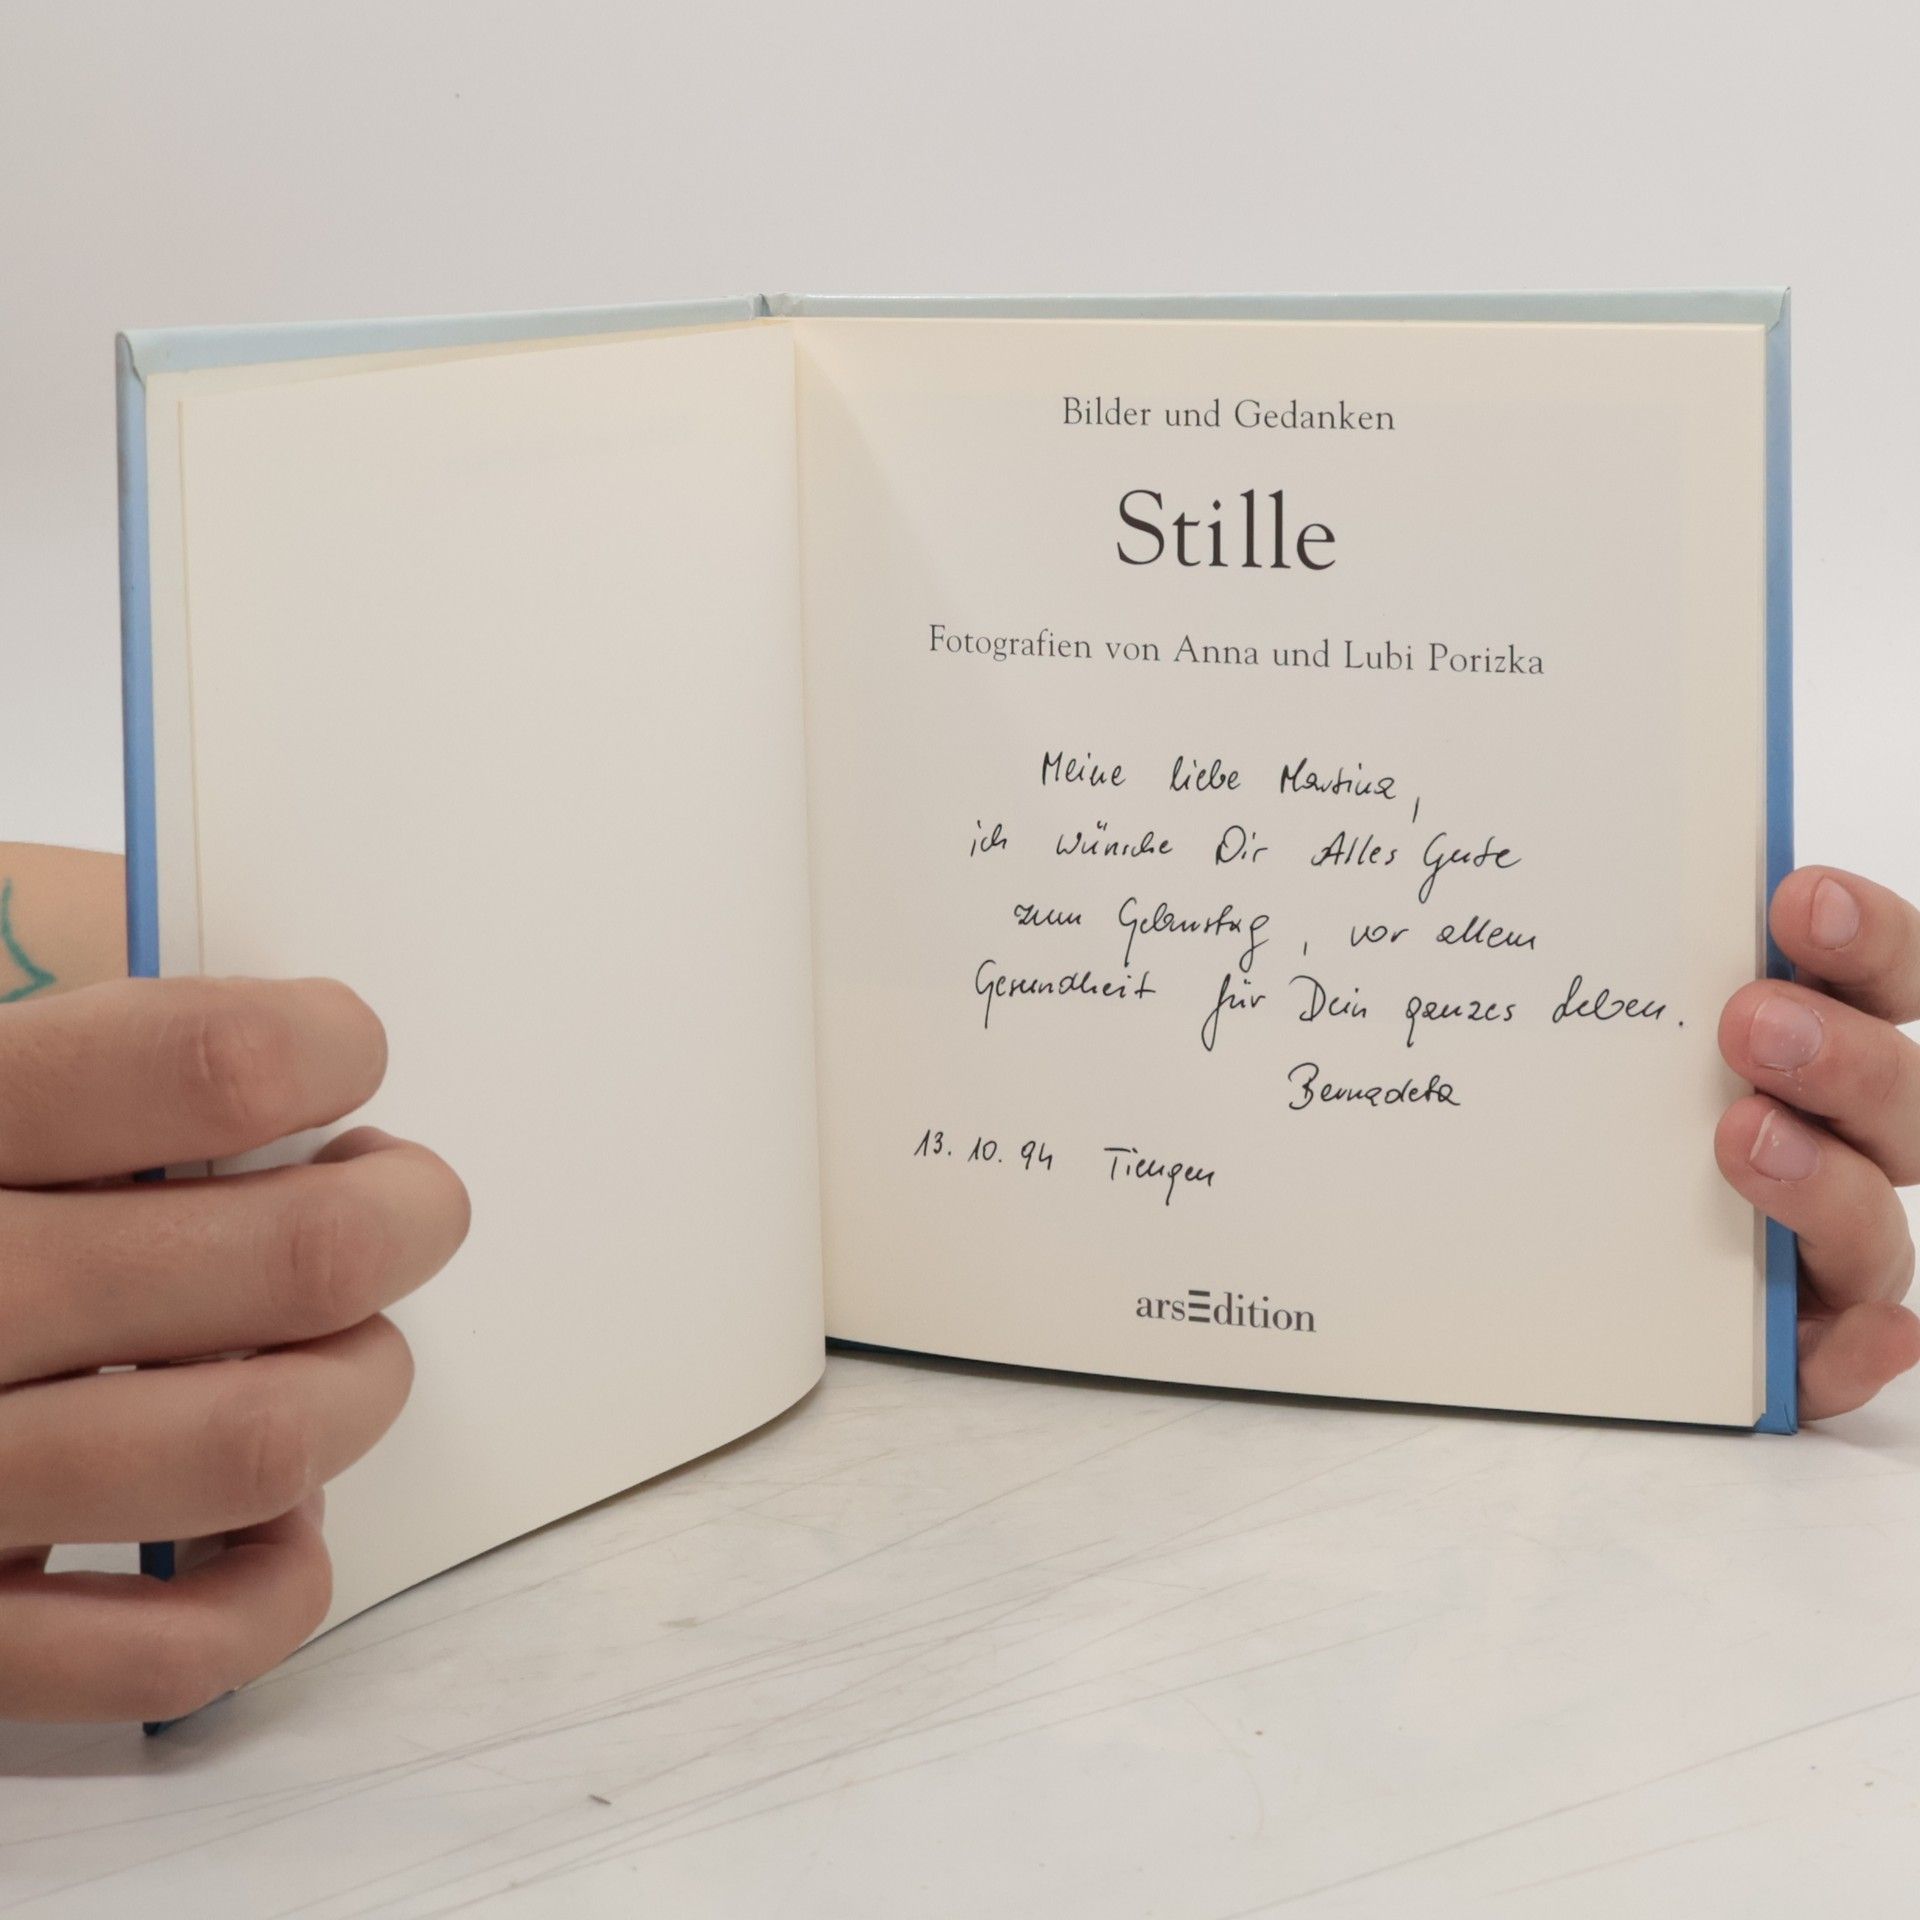 Bilder und Gedanken
Stille
Fotografien von Anna und Lubi Porizka
Meine liebe Martina,
ich wünsche Dir Alles Gute
zum Geburtstag, vor allem
Gesundheit für Dein ganzes Leben.
Bernadeta
13. 10. 94 Tiengen
arsEdition